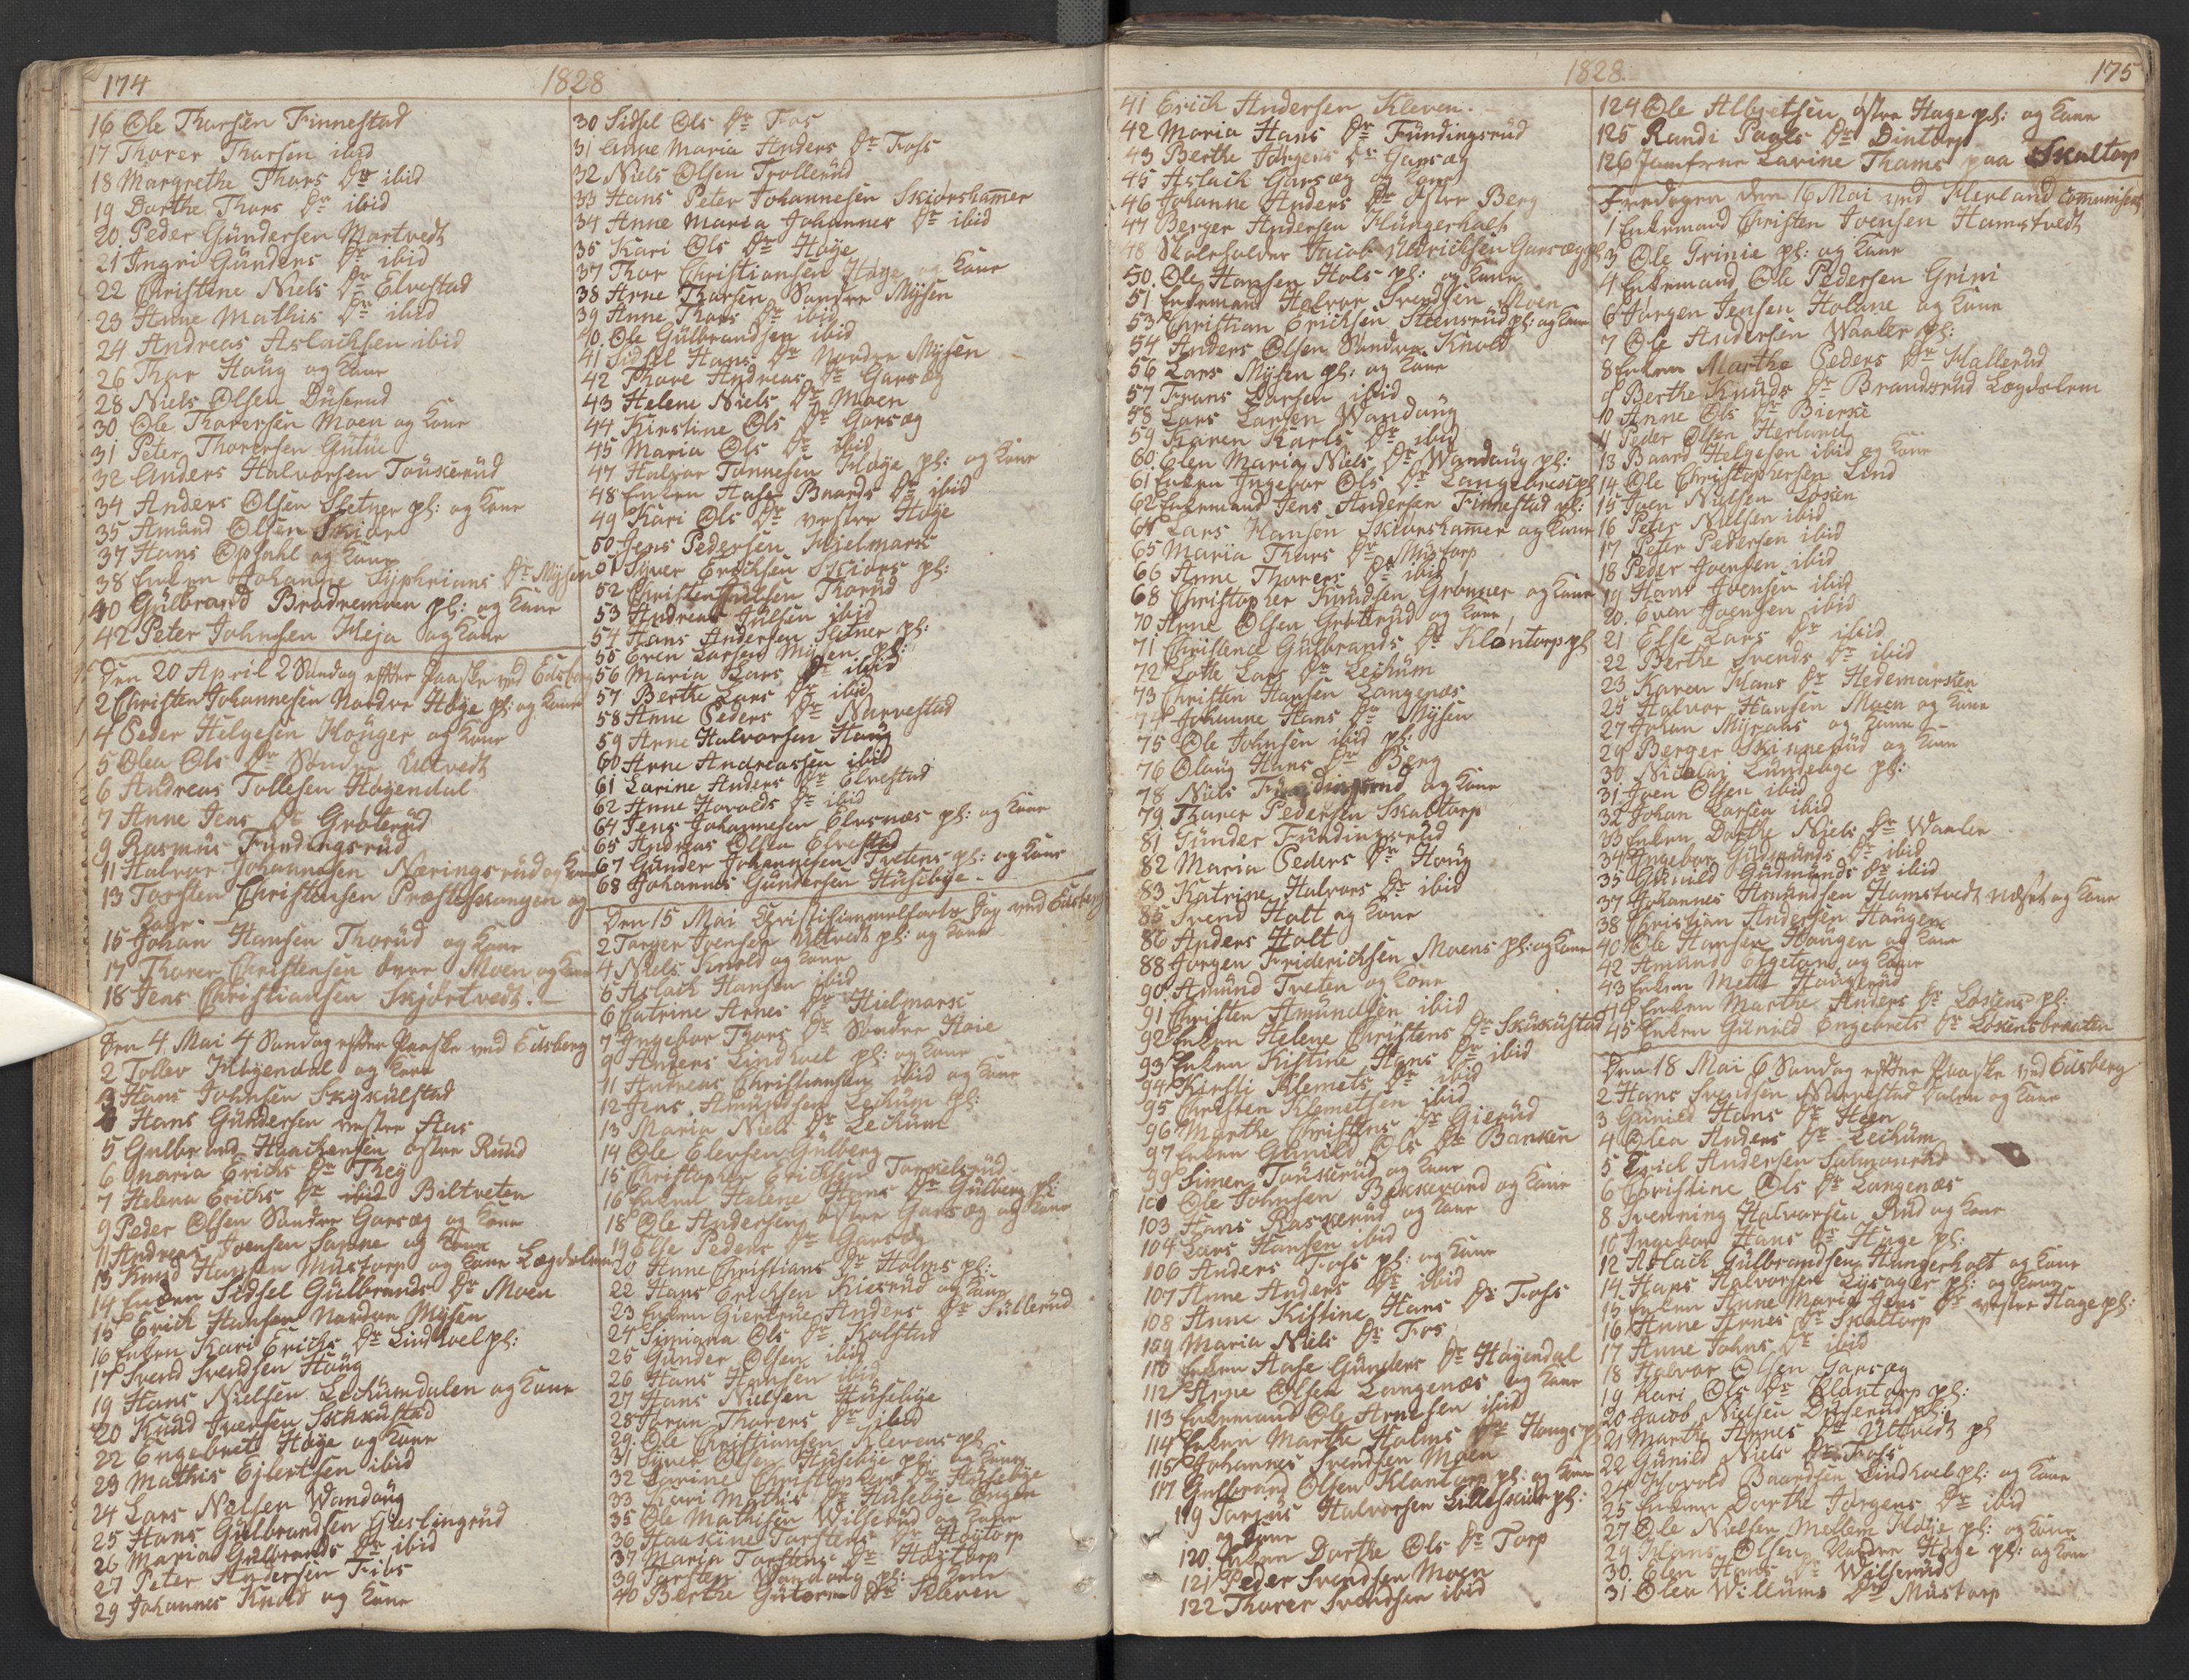 174
1828
16 Ole Thorsen Finnestad
17 Thorer Thorsen ibid
18 Margrethe Thors Dr ibid
19 Dorthe Thors Dr ibid
20 Peder Gündersen Martvedt
21 Ingri Günders Dr ibid
22 Christine Niels Dr Elvestad
23 Anne Mathis Dr ibid
24 Andreas Aslachsen ibid
26 Thor Haüg og Kone
28 Niels Olsen Düserud
30 Ole Thorersen Moen og Kone
31 Peter Thorersen Gütüe
32 Anders Halvorsen Toüskerüd
34 Anders Olsen Sletner pl: og Kone
35 Amünd Olsen Skior
37 Hans Opsahl og Kone
38 Enken Johanne Syphrians Dr Mysen
40 Gülbrand Brødremoen pl: og Kone
42 Peter Johnsen Heja og Kone
Den 20 April 2 Søndag efter Paaske ved Edsberg
2 Christen Johannesen Nordre Høye pl: og Kone
4 Peder Helgesen Konger og Kone
5 Olea Ols Dr Søndre Ultvedt
6 Andreas Tollesen Høyendal
7 Anne Jens Dr Grøterüd
9 Rasmüs Fundingsrüd
11 Halvor Johannesen Næringsrüd og Kone
13 Torsten Christensen Præsteskougen og
Kone
15 Johan Hansen Thorüd og Kone
17 Thorer Christensen øvre Moen og Kone
18 Jens Christiansen Skjørtvedt.
Den 4 Mai 4 Søndag efter Paaske ved Edsberg
2 Tollev Høyendal og Kone
3 Hans Johnsen Skyskülstad
4 Hans Gündersen vestre Aas
5 Gulbrand Haachensen østre Ruud
6 Maria Erichs Dr They
7 Helena Erichs Dr ibid Biltveten
9 Peder Olsen Søndre Garseg og Kone
11 Andreas Ivensen Sanne og Kone
13 Knud Hansen Müstorp og Kone Lægdslem
14 Enken Sidsel Gülbrands Dr Moen
15 Erich Hansen Nordre Mysen
16 Enken Kari Erichs Dr Lindhoel pl:
17 Svend Svendsen Haüg
19 Hans Nielsen Lechümdalen og Kone
20 Knud Iversen Sschüstad
22 Engebret Høye og Kone
23 Mathis Ejlertsen ibid
24 Lars Nielsen Wandaüg
25 Hans Gülbrandsen Gieslingrüd
26 Maria Gülbrands Dr ibid
27 Peter Andersen Fibs
29 Johannes Knold og Kone
30 Sidsel Ols Dr Fos
31 Anne Maria Anders Dr Foss
32 Niels Olsen Trollerüd
33 Hans Peter Johannesen Skiørshamer
34 Anne Maria Johannes Dr ibid
35 Kari Ols Dr Høye
37 Thor Christiansen Høye og Kone
38 Arne Thorsen Søndre Mysen
39 Anne Thors Dr ibid
40. Ole Gülbrandsen ibid
41 Sidsel Hans Dr Nordre Mysen
42 Thore Andreas Dr Garseg
43 Helene Niels Dr Moen
44 Kirstine Ols Dr Garseg
45 Maria Ols Dr ibid
47 Halvor Tønnesen Høye pl: og Kone
48 Enken Aase Baards Dr ibid
49 Kari Ols Dr vestre Høye
50 Jens Pedersen Hielmark
51 Syver Erichsen Skiørs pl:
52 Christen Thorüd
53 Andreas Jülsen ibid
54 Hans Andersen Sletner pl:
55 Even Larsen Mysen pl:
56 Maria Lars Dr ibid
57 Berthe Lars Dr ibid
58 Anne Peders Dr Narvestad
59 Arne Halvorsen Haüg
60 Arne Andreassen ibid
61 Larine Anders Dr Elvestad
62 Anne Harolds Dr ibid
64 Jens Johannesen Elvsnæs pl: og Kone
65 Andreas Olsen Elvestad
67 Günder Johannesen Tvetens pl: og Kone
68 Johannes Gündersen Hüsebye
Den 15 Mai Christi himmelfarts Dag ved Edsberg
2 Torger Ivensen Ultvedt pl: og Kone
4 Niels Knold og Kone
5 Aslach Hansen ibid
6 Catrine Arnes Dr Hielmark
7 Ingebor Thors Dr Søndre Høie
9 Anders Lindhoel pl: og Kone
11 Andreas Christiansen ibid og Kone
12 Jens Amündsen Lechüm pl:
13 Maria Niels Dr Lechüm
14 Ole Elevsen Gülberg
15 Christopher Erichsen Tommelsrüd
16 Enken Helene Hans Dr Gülberg pl:
18 Ole Andersen østre Garseg og Kone
19 Else Peders Dr Garseg
20 Anne Christians Dr Holms pl:
22 Hans Erichsen Kiesrüd og Kone
23 Enken Giertrüe Anders Dr Süllerüd
24 Simiana Ols Dr Kolstad
25 Günder Olsen ibid
26 Hans Hansen ibid
27 Hans Nielsen Hüsebye
28 Joran Thorers Dr ibid
29. Ole Christiansen Klevens pl:
31 Syver Olsen Hüsebye pl: og Kone
32 Larine Christophers Dr Hüsebye
33 Kari Mathis Dr Hüsebye Engen
35 Ole Mathisen Wilserüd og Kone
36 Haaskine Torstens Dr Høytorp
37 Maria Torstens Dr Høytorp
39 Torsten Wandaüg pl: og Kone
40 Berthe Gutorms Dr Kleven
1828.
175
41 Erich Andersen Kleven.
42 Maria Hans Dr Fündingsrüd
43 Berthe Jørgens Dr Garseg
45 Aslach Garseg og Kone
46 Johanne Anders Dr Østre Berg
47 Berger Andersen Hüngerholt
48 Skoleholder Jacob Uldrichsen Garseg pl:
50. Ole Hansen Hols pl: og Kone
51 Enkemand Halvor Svendsen Moen
53 Christian Erichsen Steensrüd pl: og Kone
54 Anders Olsen Søndre Knold
56 Lars Mysen pl: og Kone
57 Frans Larsen ibid
58 Lars Larsen Wandaüg
59 Karen Karls Dr ibid
60. Elen Maria Niels Dr Wandaüg pl:
61 Enken Ingebor Ols Dr Langebrecis pl
62 Enkemand Jens Andersen Finnestad pl:
64 Lars Hansen Skiørshamer og Kone
65 Maria Thors Dr Müstorp
66 Anne Thorers Dr ibid
68 Christopher Knüdsen Grønner og Kone
70 Arne Olsen Grøtterüd og Kone
71 Christence Gülbrands Dr Klontorp pl
72 Lotte Lars Dr Lechüm
73 Christen Hansen Langenæs
74 Johanne Hans Dr Mysen
75 Ole Johnsen ibid pl:
76 Olaüg Hans Dr Berg
78 Niels Fündingsrud og Kone
79 Thorer Pedersen Skaltorp
81 Günder Fündingsrüd
82 Maria Peders Dr Haüg
83 Katrine Halvors Dr ibid
85 Svend Holt og Kone
86 Anders Holt
88 Jørgen Friderichsen Moens pl: og Kone
90 Amünd Treten og Kone
91 Christen Amündsen ibid
92 Enken Helene Christens Dr Sküsküstad
93 Enken Kistine Hans Dr ibid
94 Kirsti Klemets Dr ibid
95 Christen Klemetsen ibid
96 Marthe Christens Dr Gierüd
97 Enken Günild Ols Dr Banken
99 Simen Toüskerüd og Kone
101 Ole Johnsen Bekkevard og Kone
103 Hans Raskerüd og Kone
104 Lars Hansen ibid
106 Anders Foss pl: og Kone
107 Anne Anders Dr ibid
108 Anne Kistine Hans Dr Foss
109 Maria Niels Dr Fos
110 Enken Aase Günders Dr Høyendal
112 Arne Olsen Langenæs og Kone
113 Enkemand Ole Arnesen ibid
114 Enken Marthe Holms Dr Haugs pl
115 Johannes Svendsen Moen
117 Gulbrand Olsen Klontorp pl: og Kone
119 Tarjüs Halvorsen Lilleskior pl:
og Kone
120. Enken Dorthe Ols Dr Torp
121 Peder Svendsen Moen
122 Thorer Svendsen ibid
124 Ole Albretsen østre Hage pl: og Kone
125 Randi Povels Dr Dintorp
126 Jomfrue Lavine Thams paa Skaltorp
Fredagen den 16 Mai ved Herland Comunisent
1 Enkemand Christen Ivensen Hamstvedt
3 Ole Grinie pl: og Kone
4 Enkemand Ole Pedersen Grini
6 Jørgen Jensen Holane og Kone
7 Ole Andersen Waaler pl:
8 Enken Marthe Peders Dr Hallerüd
9 Berthe Knüds Dr Brandsrüd Lægdslem
10 Anne Ols Dr Bierke
11 Peder Olsen Herland
13 Baard Helgesen ibid og Kone
14 Ole Christophersen Lind
15 Iven Nielsen Løsen
16 Peter Nielsen ibid
17 Peter Pedersen ibid
18 Peder Ivensen ibid
19 Hans Ivensen ibid
20. Even Ivensen ibid
21 Else Lars Dr ibid
22 Berthe Svends Dr ibid
23 Karen Hans Dr Hedemarsken
25 Halvor Hansen Moen og Kone
27 Johan Myraas og Kone
29 Berger Skinnerüd og Kone
30. Nicolai Lündebye pl:
31 Iven Olsen ibid
32 Johan Larsen ibid
33 Enken Dorthe Niels Dr Waaler
34 Ingebor Güdmünds Dr ibid
35 Günild Güdmünds Dr ibid
37 Johannes Amündsen Hamstvedt Næset og Kone
38 Christian Andersen Haügen
40 Ole Hansen Haügen og Kone
42 Amünd Elgetun og Kone
43 Enken Mette Haügerüd
44 Enken Marthe Anders Dr Løsens pl:
45 Enken Günild Engebrets Dr Løsensbraaten
Den 18 Mai 6 Søndag efter Paaske ved Edsberg
2 Hans Svendsen Narvestad Dalen og Kone
3 Günild Hans Dr Heen
4 Olea Anders Dr Lechüm
5 Erich Andersen Salmonrüd
6 Christine Ols Dr Langenæs
8 Svenning Halvorsen Rüd og Kone
10 Ingebor Hans Dr Hage pl:
12 Aslach Gülbrandsen Hungerholt og Kone
14 Hans Halvorsen Lysager pl: og Kone
15 Enken Anne Maria Jens Dr vestre Hage pl:
16 Anne Arnes Dr Skaltorp
17 Anne Johns Dr ibid
18 Halvor Olsen Garseg
19 Kari Ols Dr Klontorp pl:
20 Jacob Nielsen Düserud pl:
21 Marthe Arnes Dr Ultvedt pl
22 Günild Niels Dr Foss
24 Havold Baardsen Lindhoel pl: og Kone
25 Enken Dorthe Jørgens Dr ibid
27 Ole Nielsen Mellem Høje pl: og Kone
29 Hans Olsen Nordre Høye pl: og Kone
30. Elen Hans Dr Wilserüd
31 Olea Willums Dr Müstorp